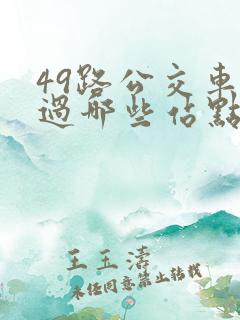 49路公交車
過哪些佔點
王玉濤
未经同意禁止转载